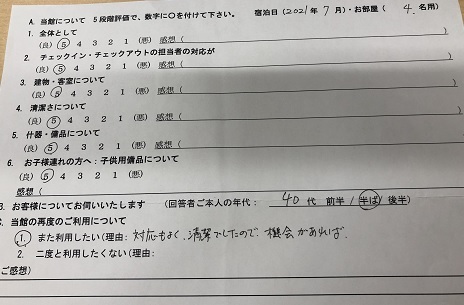 A. 当館について 5段階評価で、数字に〇を付けて下さい。 宿泊日（2021年 7月）・お部屋（ 4 名用）
1. 全体として
（良）5 4 3 2 1（悪）感想（ ）
2. チェックイン・チェックアウトの担当者の対応が
（良）5 4 3 2 1（悪）感想（ ）
3. 建物・客室について
（良）5 4 3 2 1（悪）感想（ ）
4. 清潔さについて
（良）5 4 3 2 1（悪）感想（ ）
5. 什器・備品について
（良）5 4 3 2 1（悪）感想（ ）
6. お子様連れの方へ：子供用備品について
（良）5 4 3 2 1（悪）
感想（ ）
B. お客様についてお伺いいたします （回答者ご本人の年代： 40代 前半 / 半ば / 後半）
C. 当館の再度のご利用について
1. また利用したい（理由：対応もよく、清潔でしたので、機会があれば.
2. 二度と利用したくない（理由：
ご感想）